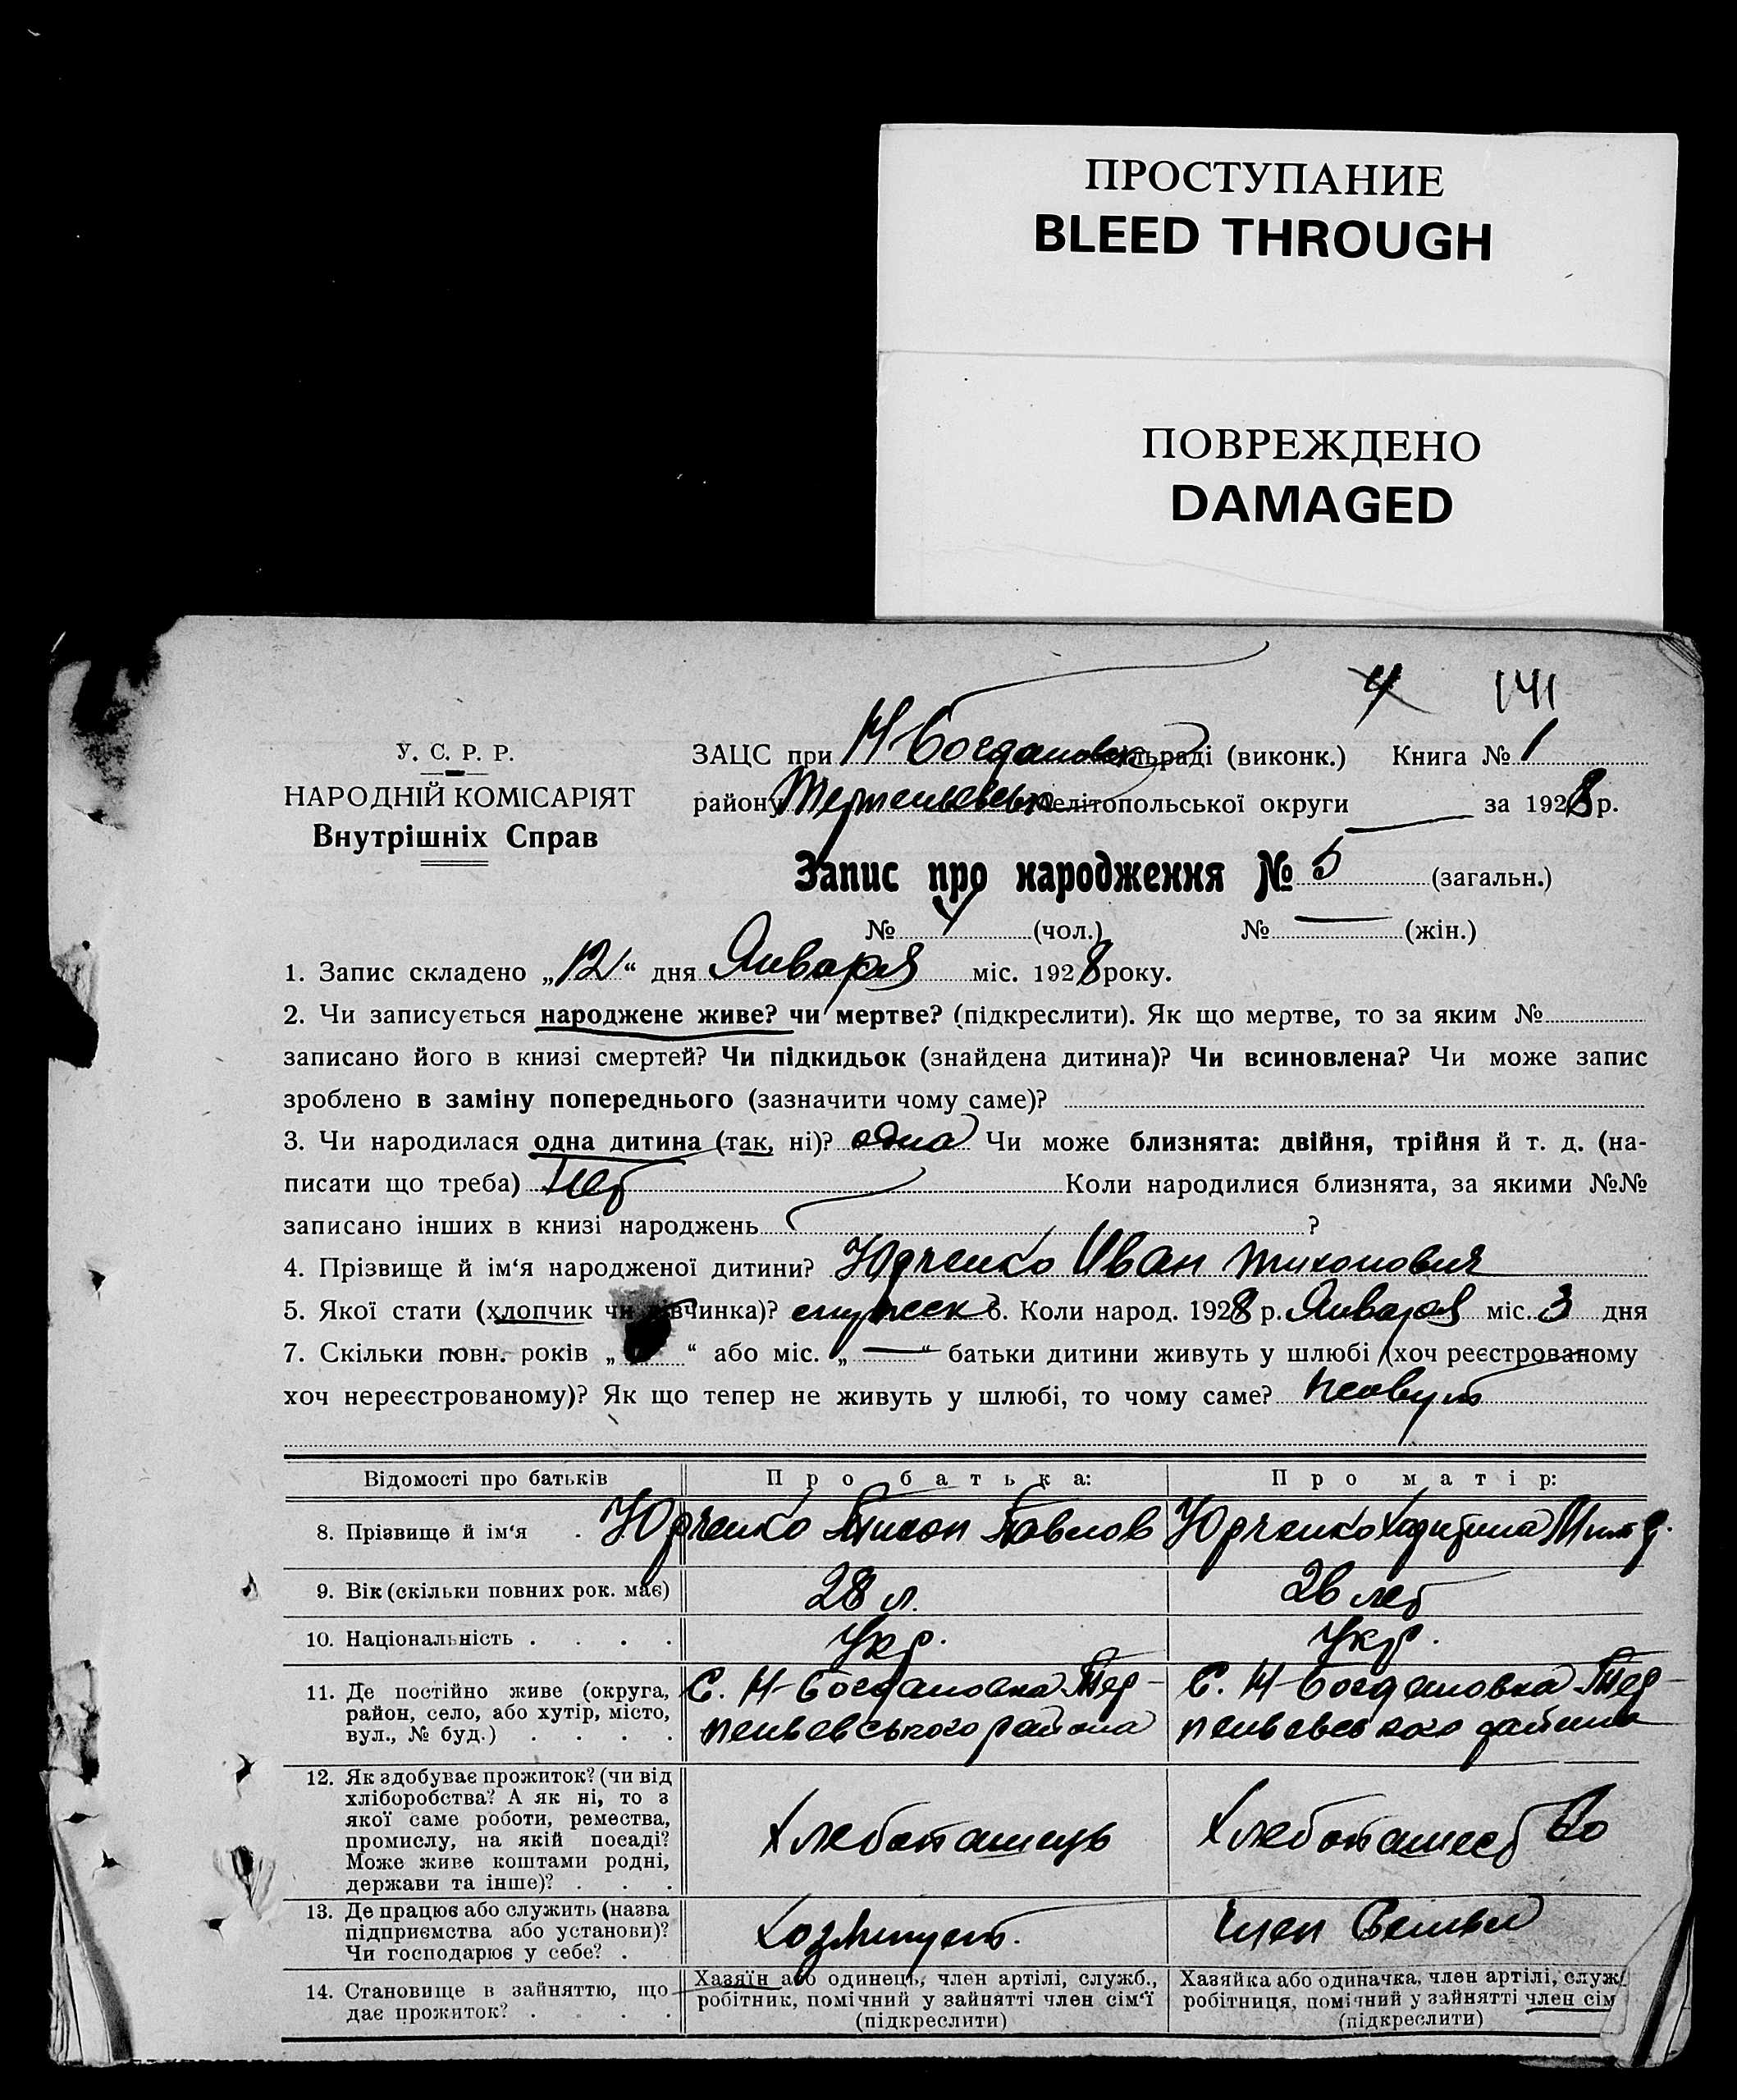 ПРОСТУПАНИЕ
BLEED THROUGH
ПОВРЕЖДЕНО
DAMAGED
4 141
У. С. Р. Р.
НАРОДНІЙ КОМІСАРІЯТ
Внутрішніх Справ
ЗАЦС при Н Богдановск сільраді (виконк.) Книга № 1
району Терпеньевськ Мелітопольської округи за 1928 р.
Запис про народження № 5 (загальн.)
№ 4 (чол.) № — (жін.)
1. Запис складено „12“ дня Января міс. 1928 року.
2. Чи записується народжене живе? чи мертве? (підкреслити). Як що мертве, то за яким №
записано його в книзі смертей? Чи підкидьок (знайдена дитина)? Чи всиновлена? Чи може запис
зроблено в заміну попереднього (зазначити чому саме)?
3. Чи народилася одна дитина (так, ні)? одна Чи може близнята: двійня, трійня й т. д. (на-
писати що треба) Нет Коли народилися близнята, за якими №№
записано інших в книзі народжень ?
4. Прізвище й ім‘я народженої дитини? Юрченко Иван Тихонович
5. Якої стати (хлопчик чи дівчинка)? 6. Коли народ. 1928 р. Января міс. 3 дня
7. Скільки повн. років „ “ або міс. „—“ батьки дитини живуть у шлюбі (хоч реєстрованому
хоч нереєстрованому)? Як що тепер не живуть у шлюбі, то чому саме?
Відомості про батьків Про батька: Про матір:
8. Прізвище й ім‘я . Юрченко Тихон Павлов Юрченко Харитина
9. Вік (скільки повних рок. має) 28 л. 26 лет
10. Національність . . . . Укр. Укр.
11. Де постійно живе (округа, район, село, або хутір, місто, вул., № буд.) . . . .
С. Н-Богдановка Тер-
пеньевського района
С. Н-Богдановка Тер-
пеньевського района
12. Як здобуває прожиток? (чи від
хліборобства? А як ні, то з
якої саме роботи, ремества,
промислу, на якій посаді?
Може живе коштами родні,
держави та інше)? . . .
Хлебопашець Хлебопашество
13. Де працює або служить (назва
підприємства або установи)?
Чи господарює у себе? .
Член Семьи
14. Становище в зайняттю, що
дає прожиток? . . . .
Хазяїн або одинець, член артілі, служб.,
робітник, помічний у зайнятті член сім‘ї
(підкреслити)
Хазяйка або одиначка, член артілі, служ.
робітниця, помічний у зайнятті член сім
(підкреслити)